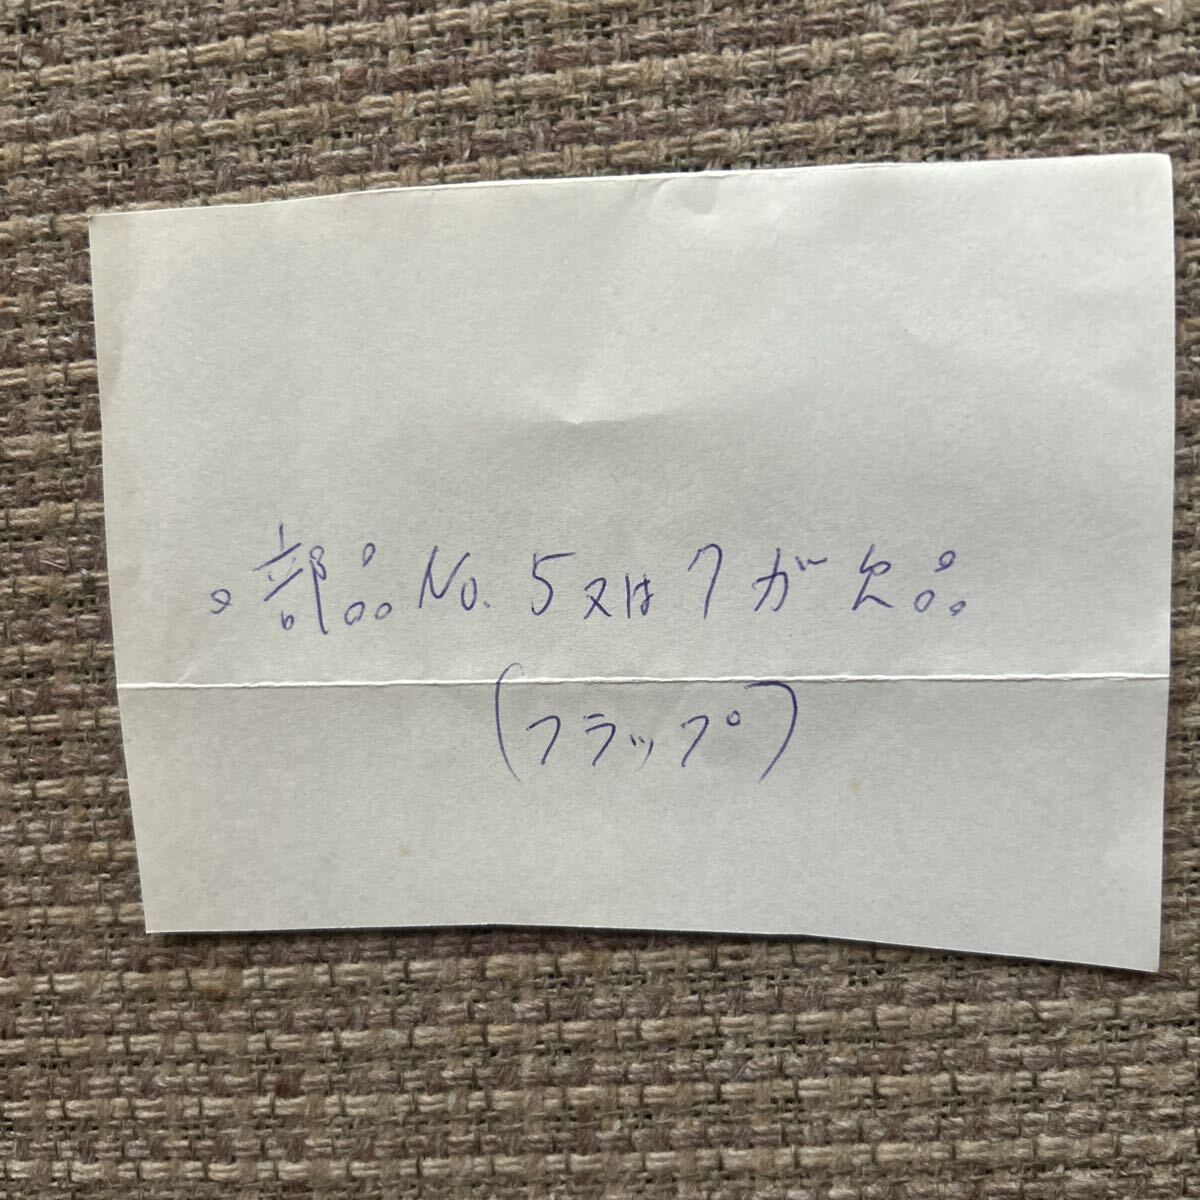 。部品No.5又は7が欠品
(フラップ)